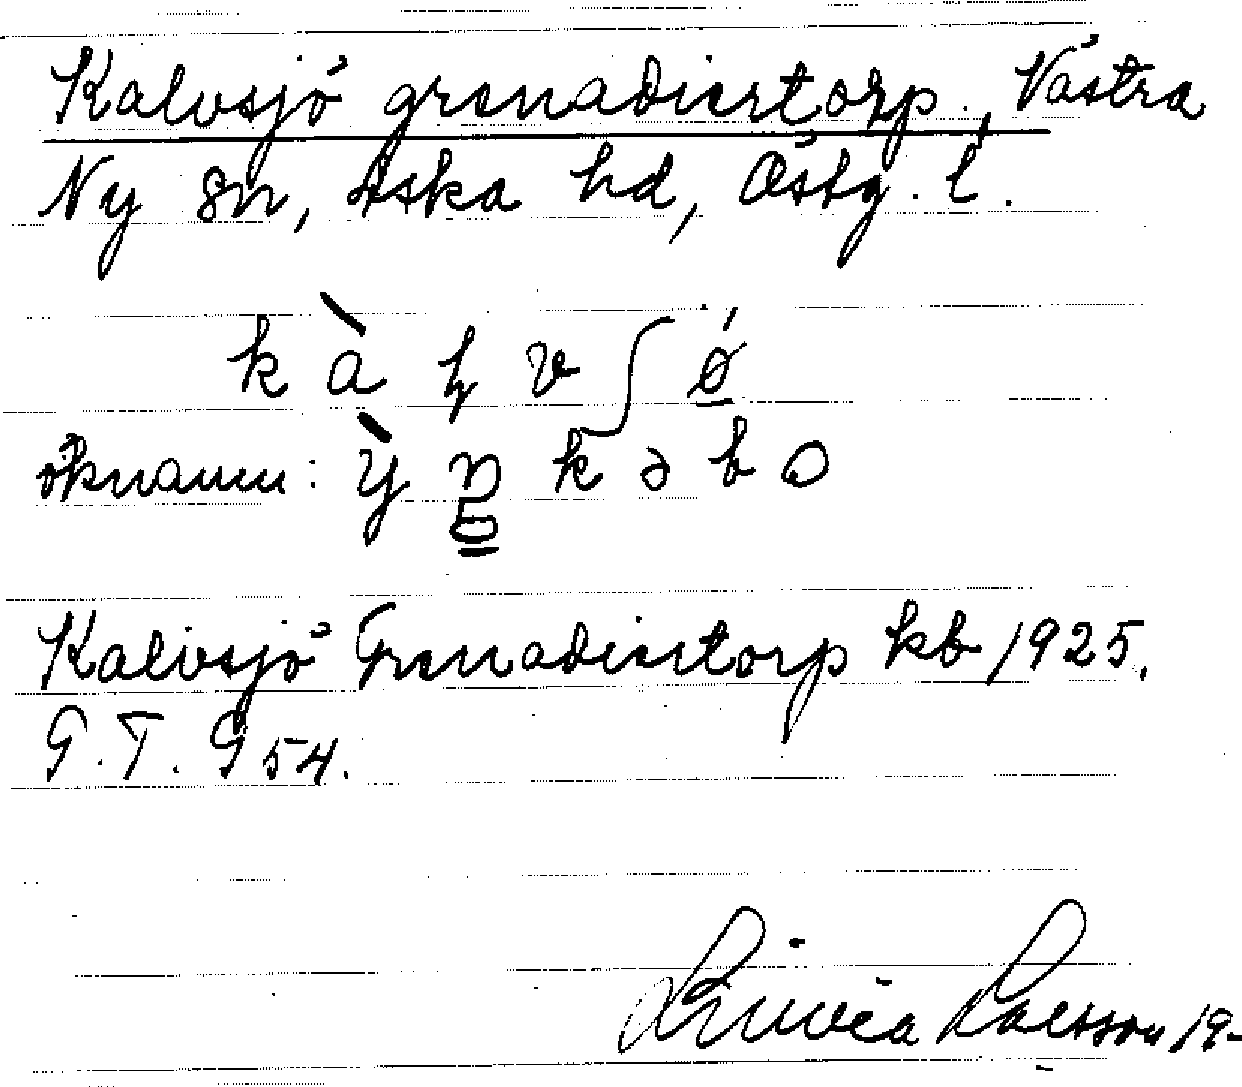 Kalvsjö grenadiertorp, Västra
Ny sn, Aska hd, Östg. l.
k à ɽ v ʃ ǿ
öknamn: y̏ ŋ k ə b o
Kalvsjö Grenadiertorp kb 1925.
G.T. G 54.
Linnéa Larsson 19-